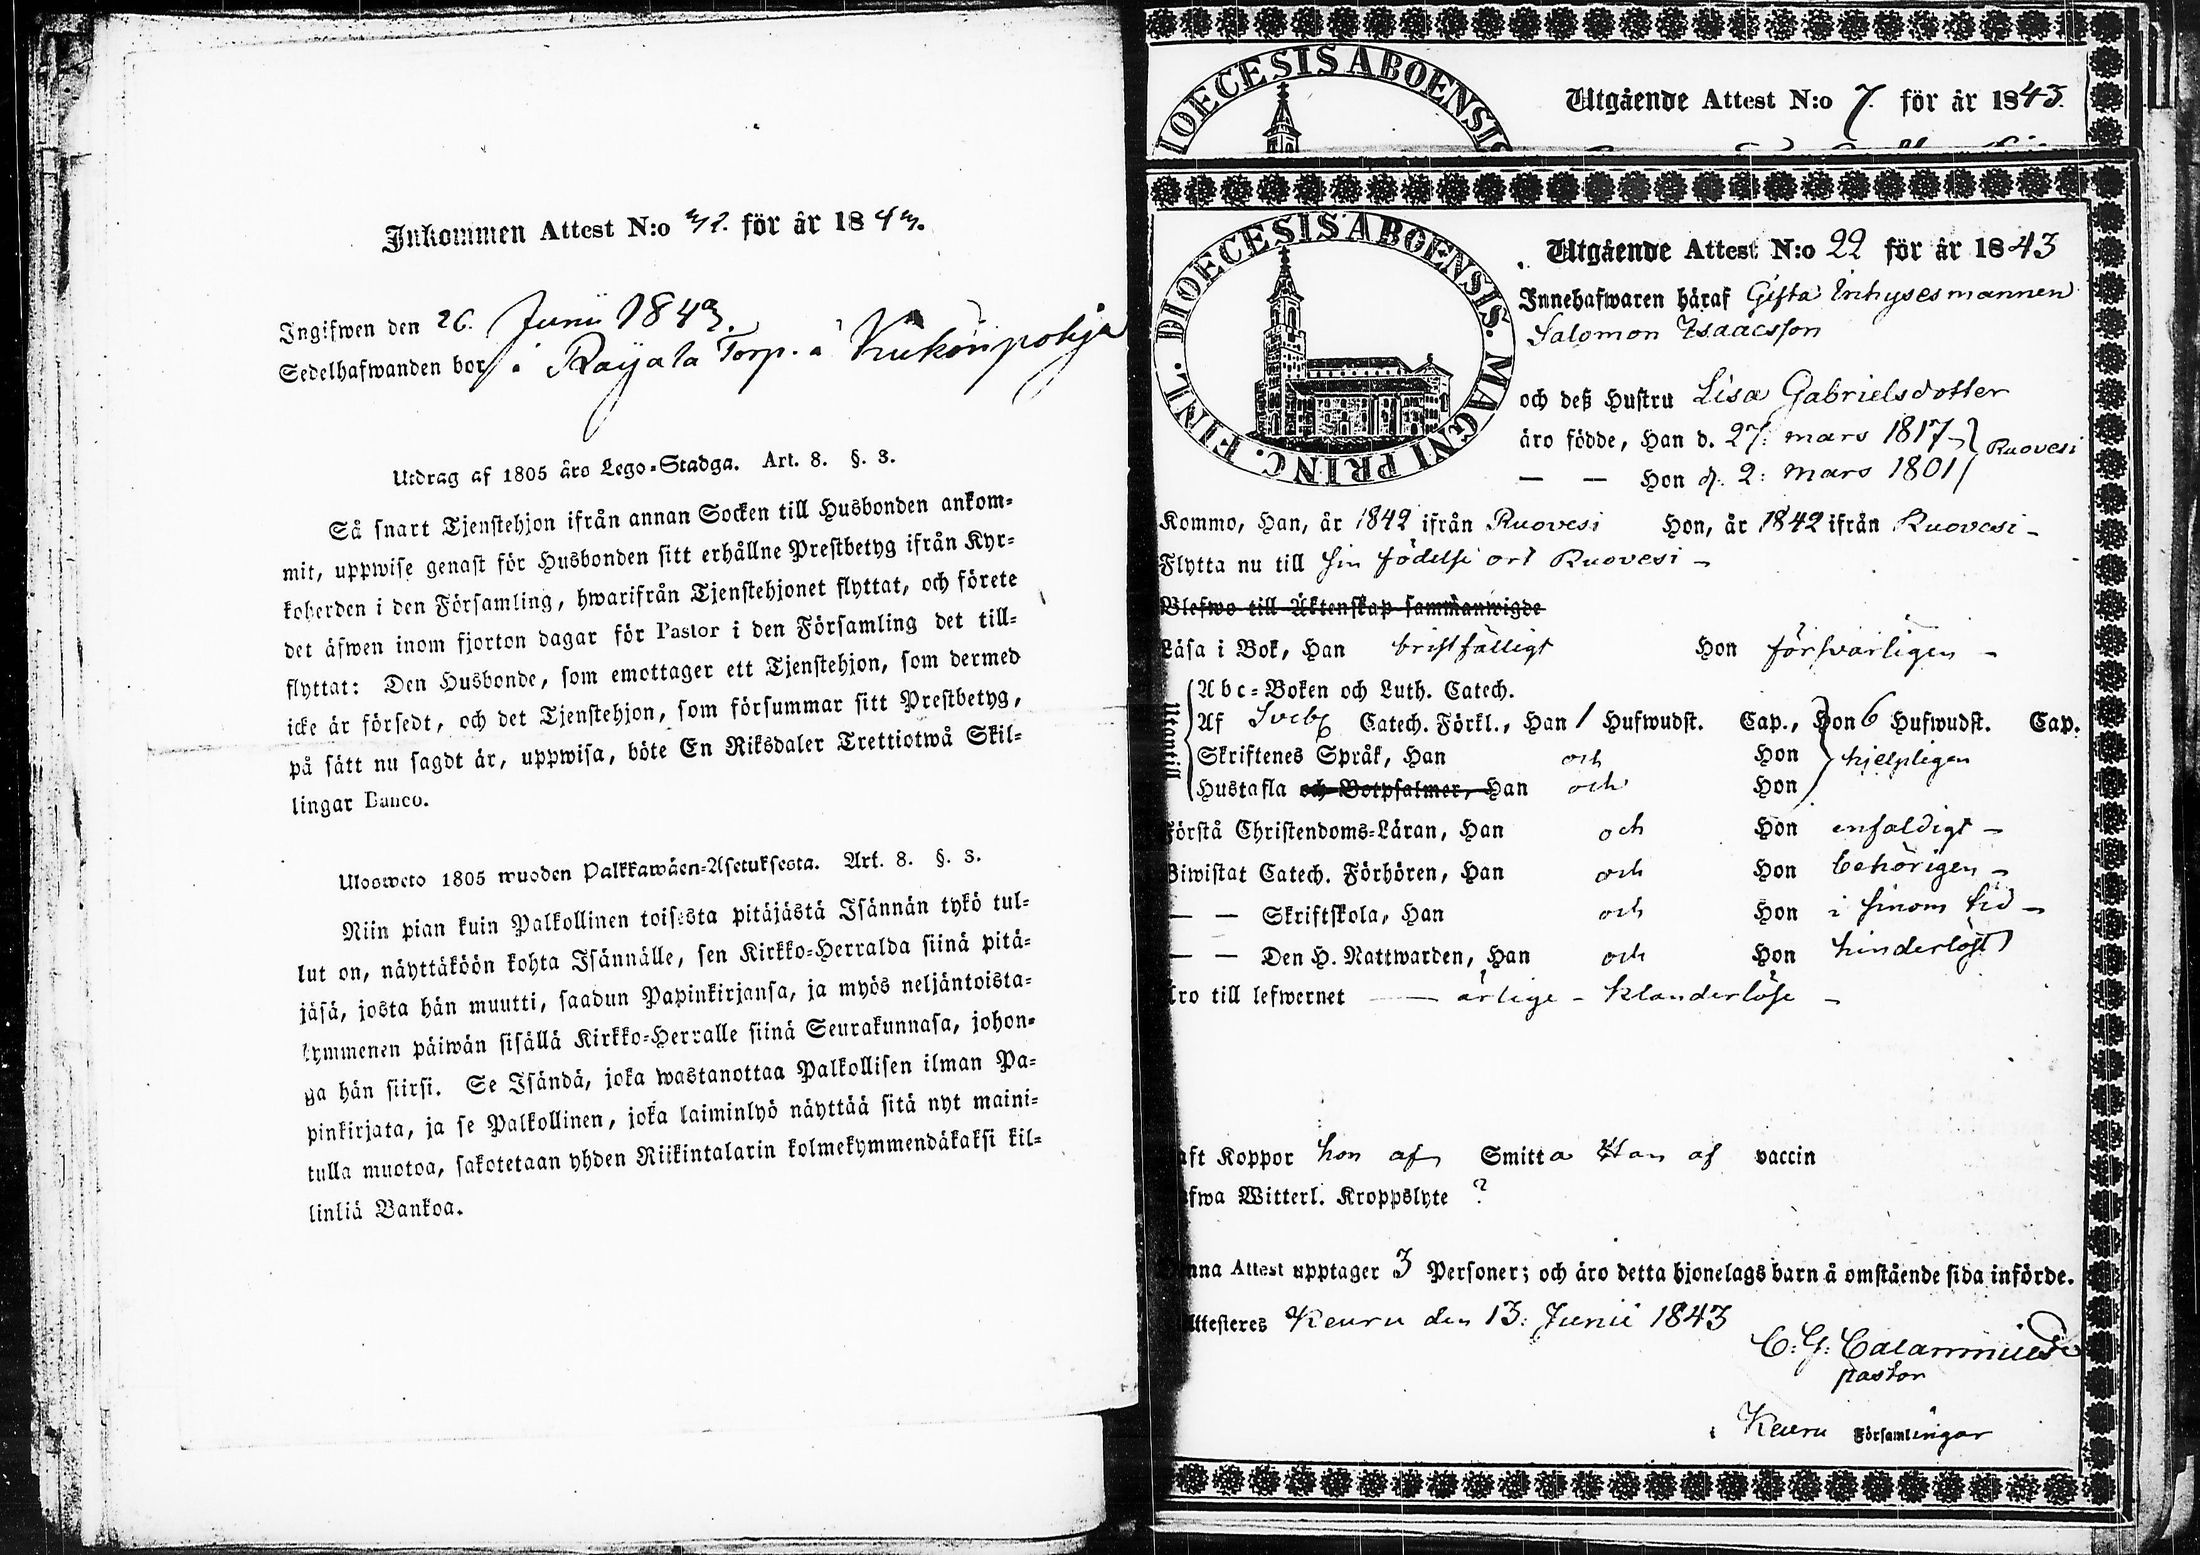 Inkommen Attest N:o 32. för år 1843.
Ingifwen den 26. Junii 1843.
Sedelhafwanden bor i Rayala Torp. å
Utdrag af 1805 års Lego-Stadga. Art. 8. §. 3.
Så snart Tjenstehjon ifrån annan Socken till Husbonden ankom-
mit, uppwise genast för Husbonden sitt erhållne Prestbetyg ifrån Kyr-
koherden i den Församling, hwarifrån Tjenstehjonet flyttat, och förete
det äfwen inom fjorton dagar för Pastor i den Församling det till-
flyttat: Den Husbonde, som emottager ett Tjenstehjon, som dermed
icke är försedt, och det Tjenstehjon, som försummar sitt Prestbetyg,
på sätt nu sagdt är, uppwisa, böte En Riksdaler Trettiotwå Skil-
lingar Banco.
Ulosweto 1805 wuoden Palkkawäen-Asetuksesta. Art. 8. §. 3.
Niin pian kuin Palkollinen toisesta pitäjästä Isännän tykö tul-
lut on, näyttäköön kohta Isännälle, sen Kirkko-Herralda siinä pitä-
jäsä, josta hän muutti, saadun Papinkirjansa, ja myös neljäntoista-
kymmenen päiwän sisällä Kirkko-Herralle siinä Seurakunnasa, johon-
ga hän siirsi. Se Isändä, joka wastanottaa Palkollisen ilman Pa-
pinkirjata, ja se Palkollinen, joka laiminlyö näyttää sitä nyt maini-
tulla muotoa, sakotetaan yhden Riikintalarin kolmekymmendäkaksi kil-
linliä Bankoa.
IOECESIS ABOENSIS
Utgående Attest N:o 7. för år 1843.
DIOECESIS ABOENSIS. MAGNI PRINC. FINL.
Utgående Attest N:o 22 för år 1843
Innehafwaren häraf Gifta Inhysesmannen
Salomon Isaacsson
och deß Hustru Lisa Gabrielsdotter
äro födde, Han d. 27: mars 1817 Ruovesi
— — Hon d. 2: mars 1801
Kommo, Han, år 1842 ifrån Ruovesi Hon, år 1842 ifrån Ruovesi -
Flytta nu till sin födelse ort Ruovesi -
Blefwo till Äktenskap sammanwigde
Läsa i Bok, Han bristfälligt Hon försvarligen -
Utantill
Abc-Boken och Luth. Catech.
Af Sveb. Catech. Förkl., Han 1 Hufwudst. Cap., Hon 6 Hufwudst. Cap.
Skriftenes Språk, Han och Hon hjelpligen
Hustafla och Botpsalmer, Han och Hon
Förstå Christendoms-Läran, Han och Hon enfaldigt -
Biwistat Catech. Förhören, Han och Hon behörigen -
— — Skriftskola, Han och Hon i sinom tid -
— — Den H. Nattwarden, Han och Hon hinderlöst
Äro till lefwernet — ärlige - klanderlöse -
aft Koppor hon af Smitta Han af vaccin
fwa Witterl. Kroppslyte ?
Denna Attest upptager 3 Personer; och äro detta hjonelags barn å omstående sida införde.
Attesteres Keuru den 13: Junii 1843
C. G. Calamnius
pastor
i Keuru Församlingar